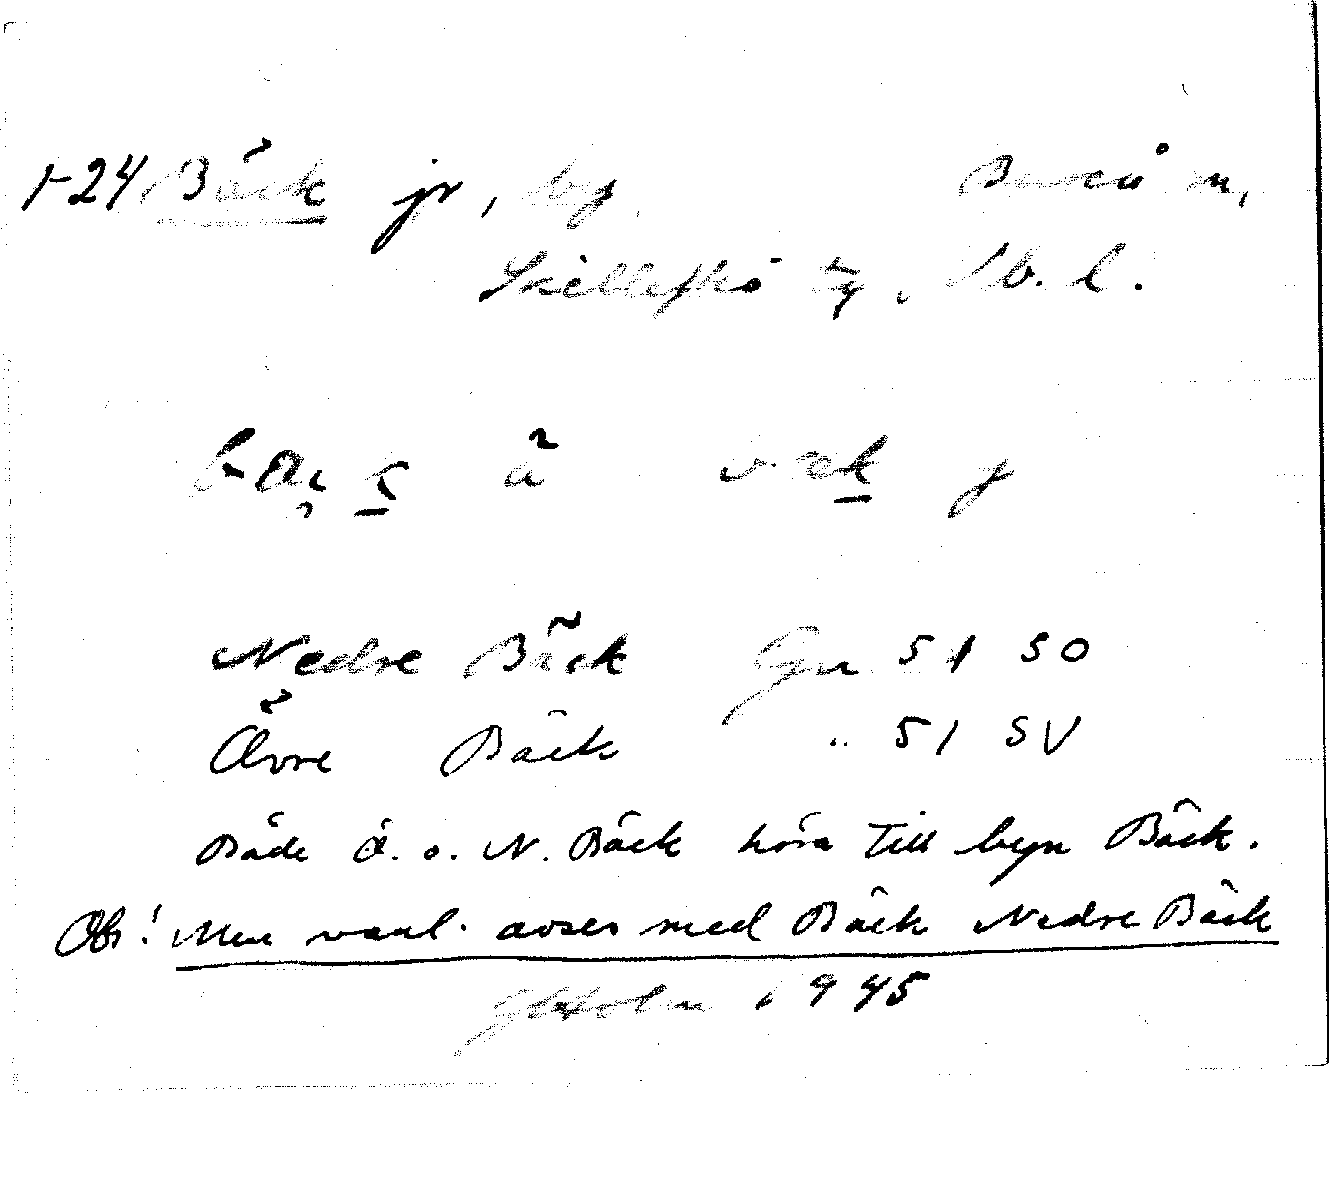 1-24 Bäck jr, by Bureå sn,
Skellefteå tg, Vb. l.
Nedre Bäck Gn 51 SO
Övre Bäck " 51 SV
Både Ö. o. N. Bäck höra till byn Bäck.
Obs! Men vanl. avses med Bäck Nedre Bäck
1945